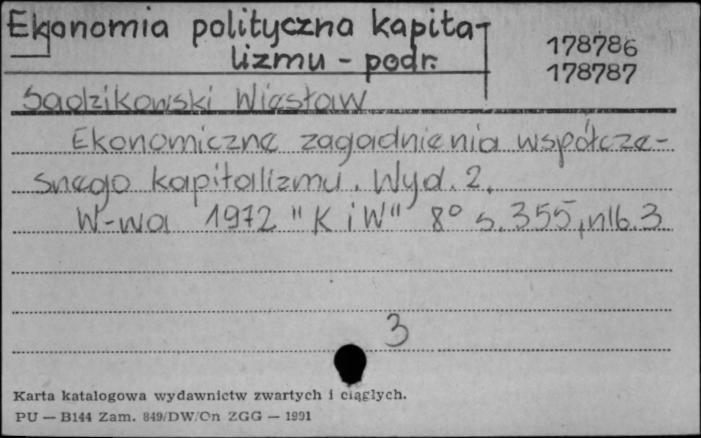 Ekonomia polityczna kapita-
lizmu - podr.
178786
178787
Sadzikowski Wiesław
Ekonomiczne zagadnienia współcze-
snego kapitalizmu. Wyd. 2.
W-wa 1972 "K i W" 8° s. 355, nlb. 3
3
Karta katalogowa wydawnictw zwartych i ciągłych.
PU — B144 Zam. 849/DW/On ZGG — 1991